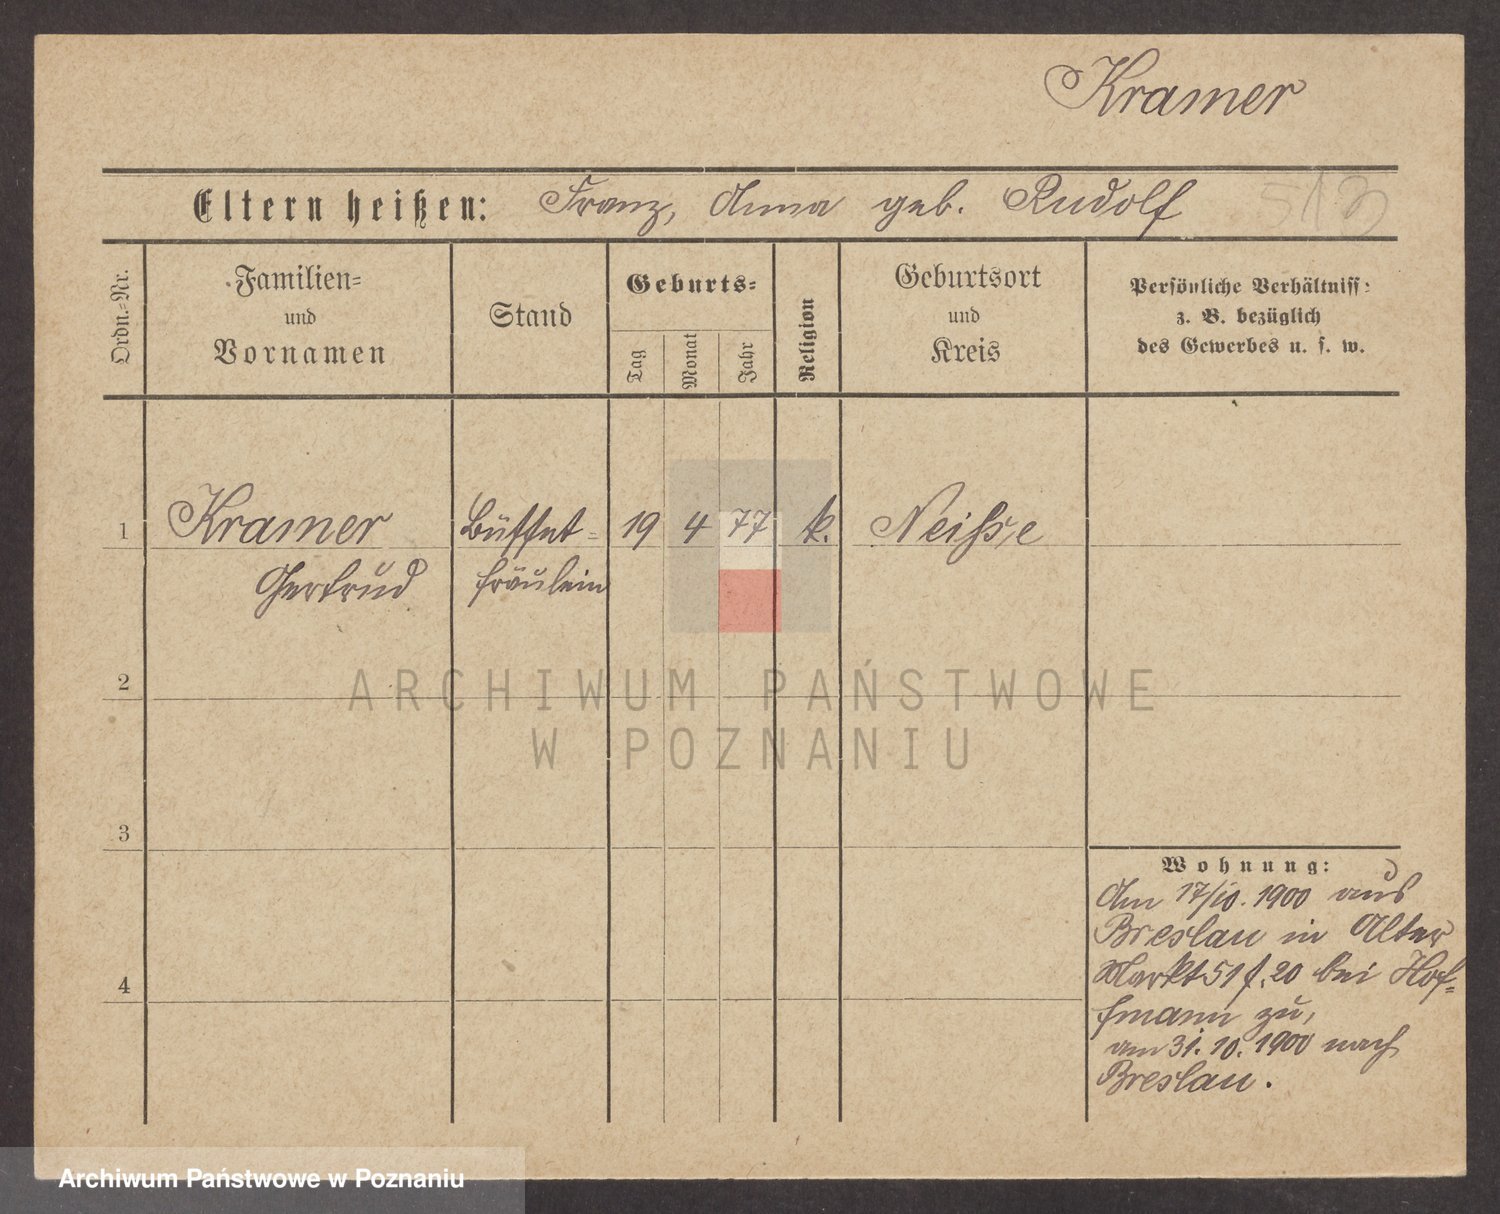 Kramer
Eltern heißen: Franz, Anna geb. Rudolf 513
Ordn.-Nr.
Familien=
und
Vornamen
Stand
Geburts=
Tag
Monat
Jahr
Religion
Geburtsort
und
Kreis
Persönliche Verhältniss:
z. B. bezüglich
des Gewerbes u. s. w.
1 Kramer Büffet= 19 4 77 k. Neisse
Gertrud fräulein
2
ARCHIWUM PAŃSTWOWE
W POZNANIU
3
Wohnung:
Am 17/10. 1900 aus
Breslau in Alter
Markt 51 f. 20 bei Hof=
4
fmann zu,
am 31. 10. 1900 nach
Breslau.
Archiwum Państwowe w Poznaniu